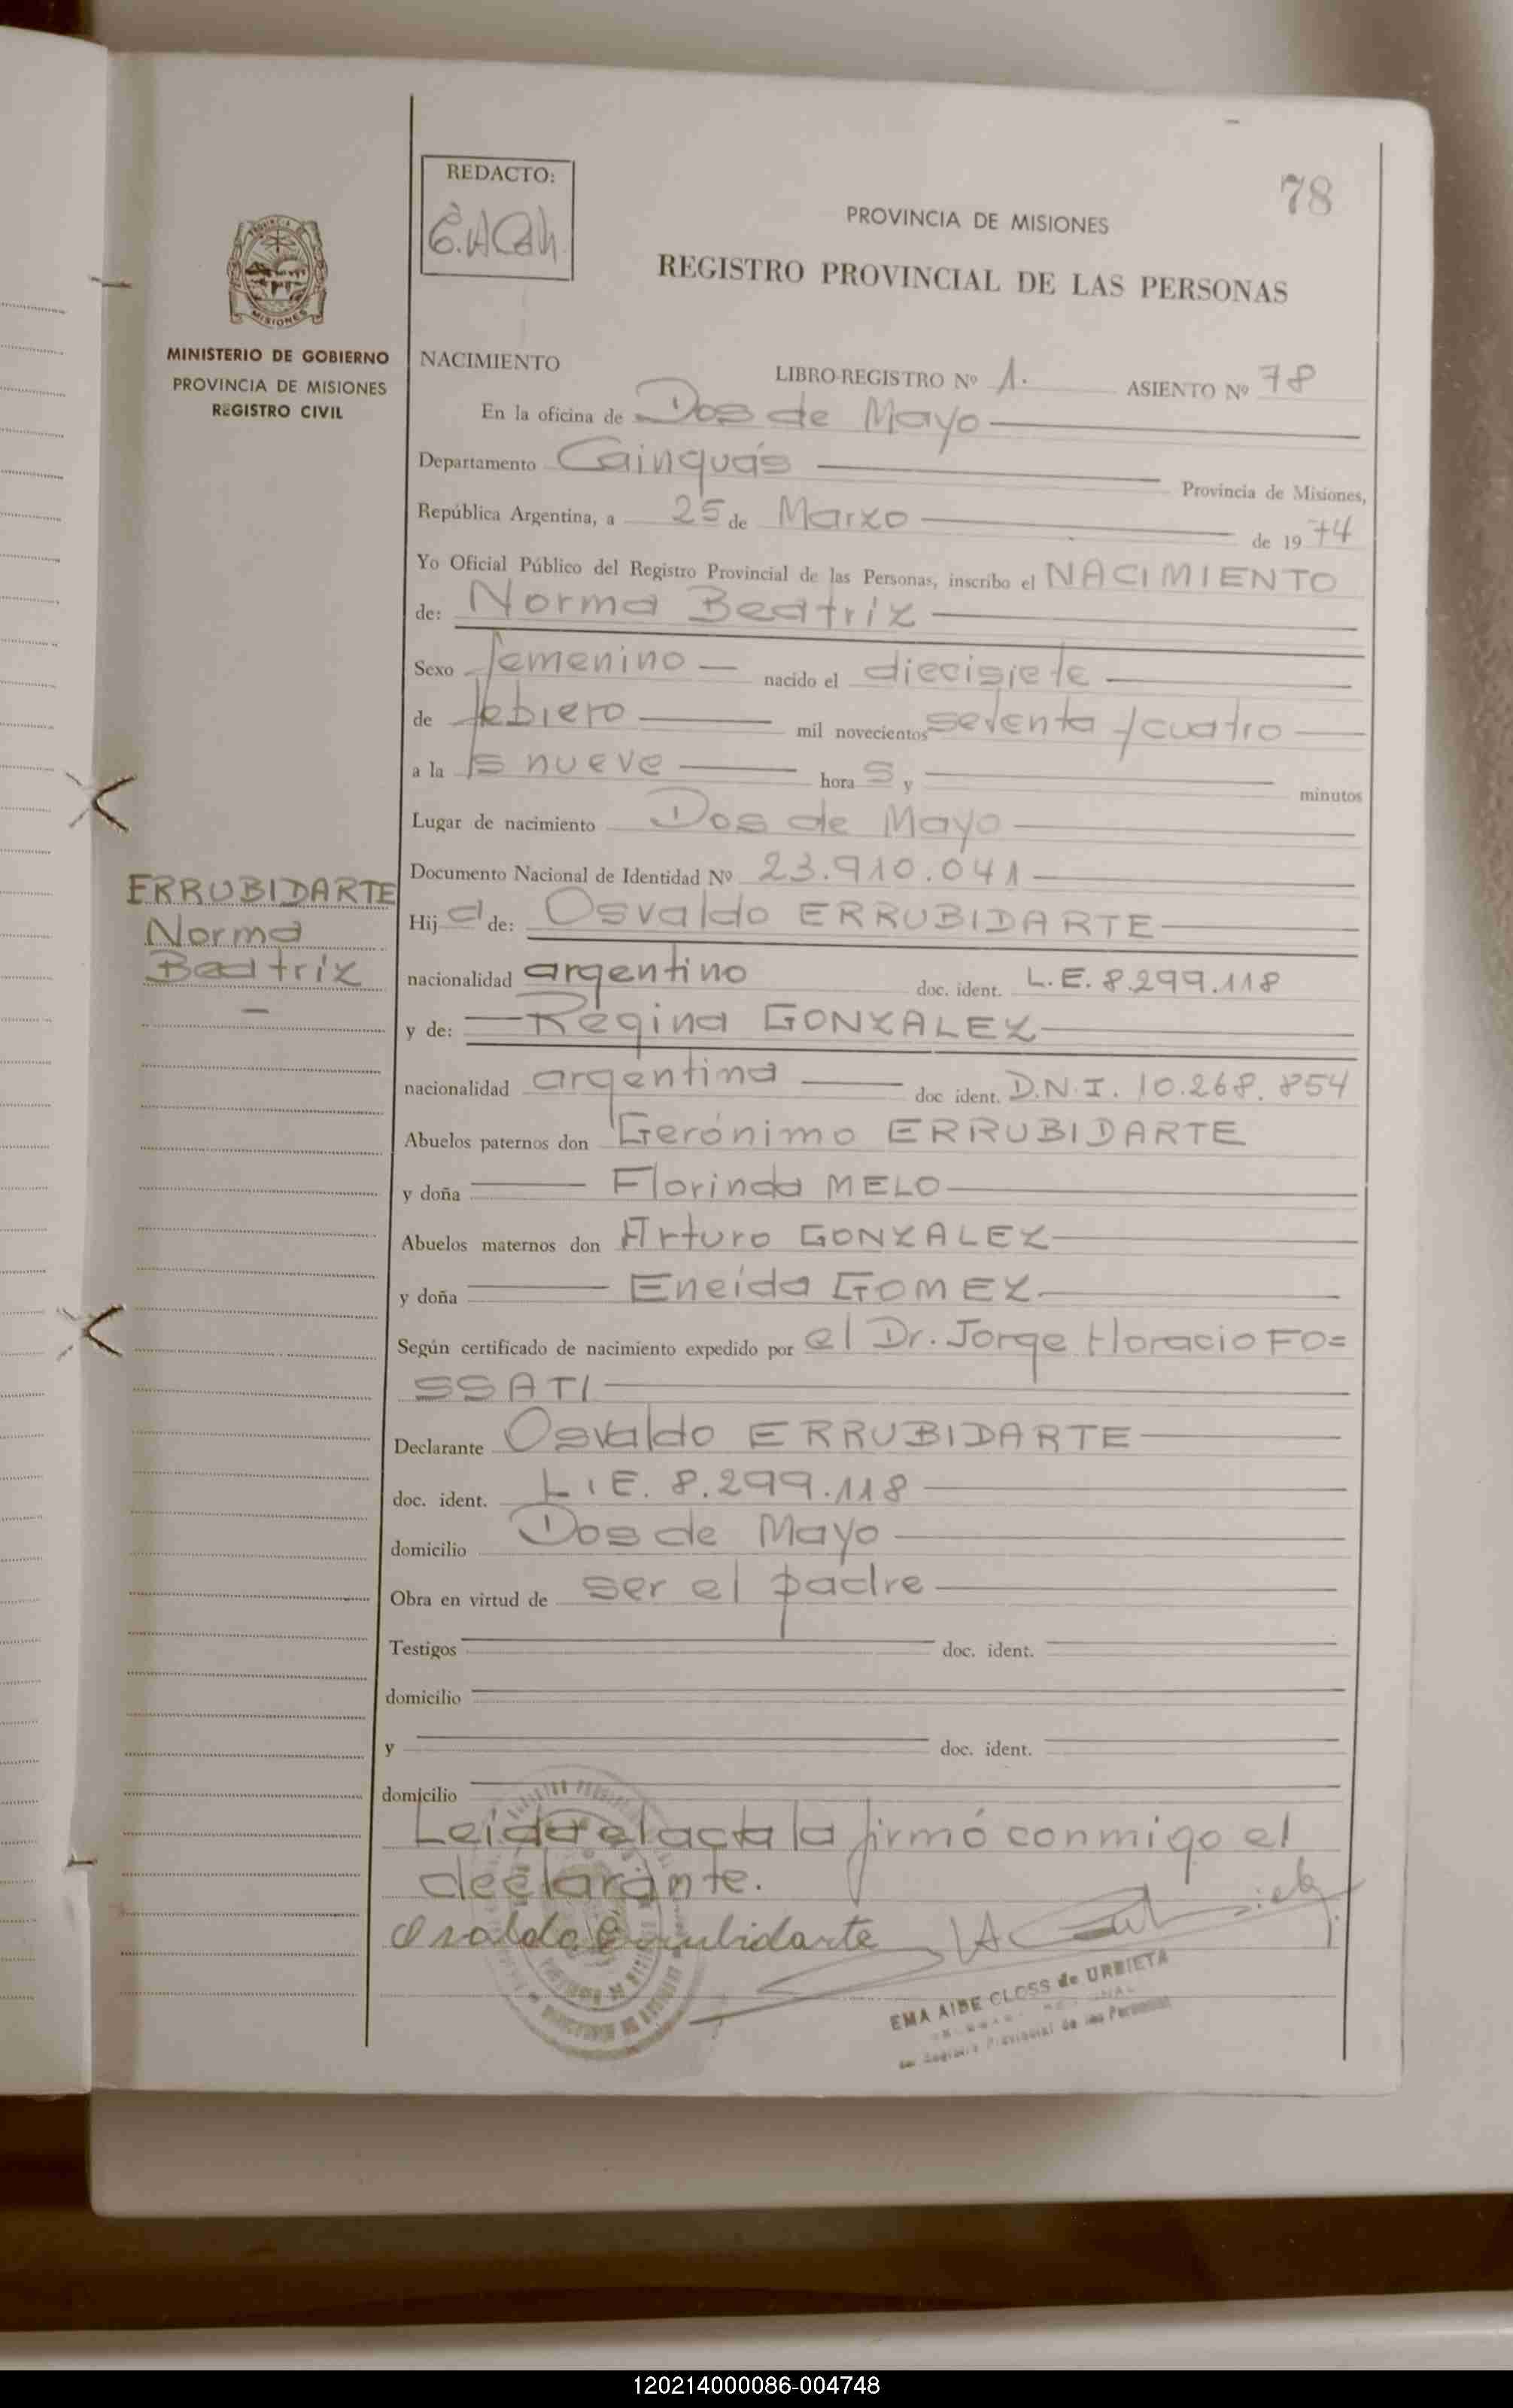 78
REDACTO:
PROVINCIA DE MISIONES
REGISTRO PROVINCIAL DE LAS PERSONAS
MISIONES
MINISTERIO DE GOBIERNO
PROVINCIA DE MISIONES
REGISTRO CIVIL
NACIMIENTO LIBRO-REGISTRO Nº 1. ASIENTO Nº 78
En la oficina de Dos de Mayo
Departamento Cainguás Provincia de Misiones,
República Argentina, a 25 de Marzo de 19 74
Yo Oficial Público del Registro Provincial de las Personas, inscribo el NACIMIENTO
de: Norma Beatríz
Sexo femenino nacido el diecisiete
de febrero mil novecientos setenta y cuatro
a la s nueve hora s y minutos
Lugar de nacimiento Dos de Mayo
Documento Nacional de Identidad Nº 23.910.041
ERRUBIDARTE
Norma
Beatríz
Hij a de: Osvaldo ERRUBIDARTE
nacionalidad argentino doc. ident. L.E. 8.299.118
y de: Regina GONZALEZ
nacionalidad argentina doc ident. D.N.I. 10.268.854
Abuelos paternos don Gerónimo ERRUBIDARTE
y doña Florinda MELO
Abuelos maternos don Arturo GONZALEZ
y doña Eneida GOMEZ
Según certificado de nacimiento expedido por el Dr. Jorge Horacio FO=
SSATI
Declarante Osvaldo ERRUBIDARTE
doc. ident. L.E. 8.299.118
domicilio Dos de Mayo
Obra en virtud de ser el padre
Testigos doc. ident.
domicilio
y doc. ident.
domicilio
Leída el acta la firmó conmigo el
declarante.
Osvaldo Errubidarte
EMA AIDE CLOSS de URBIETA
Registro Provincial de las Personas
120214000086-004748